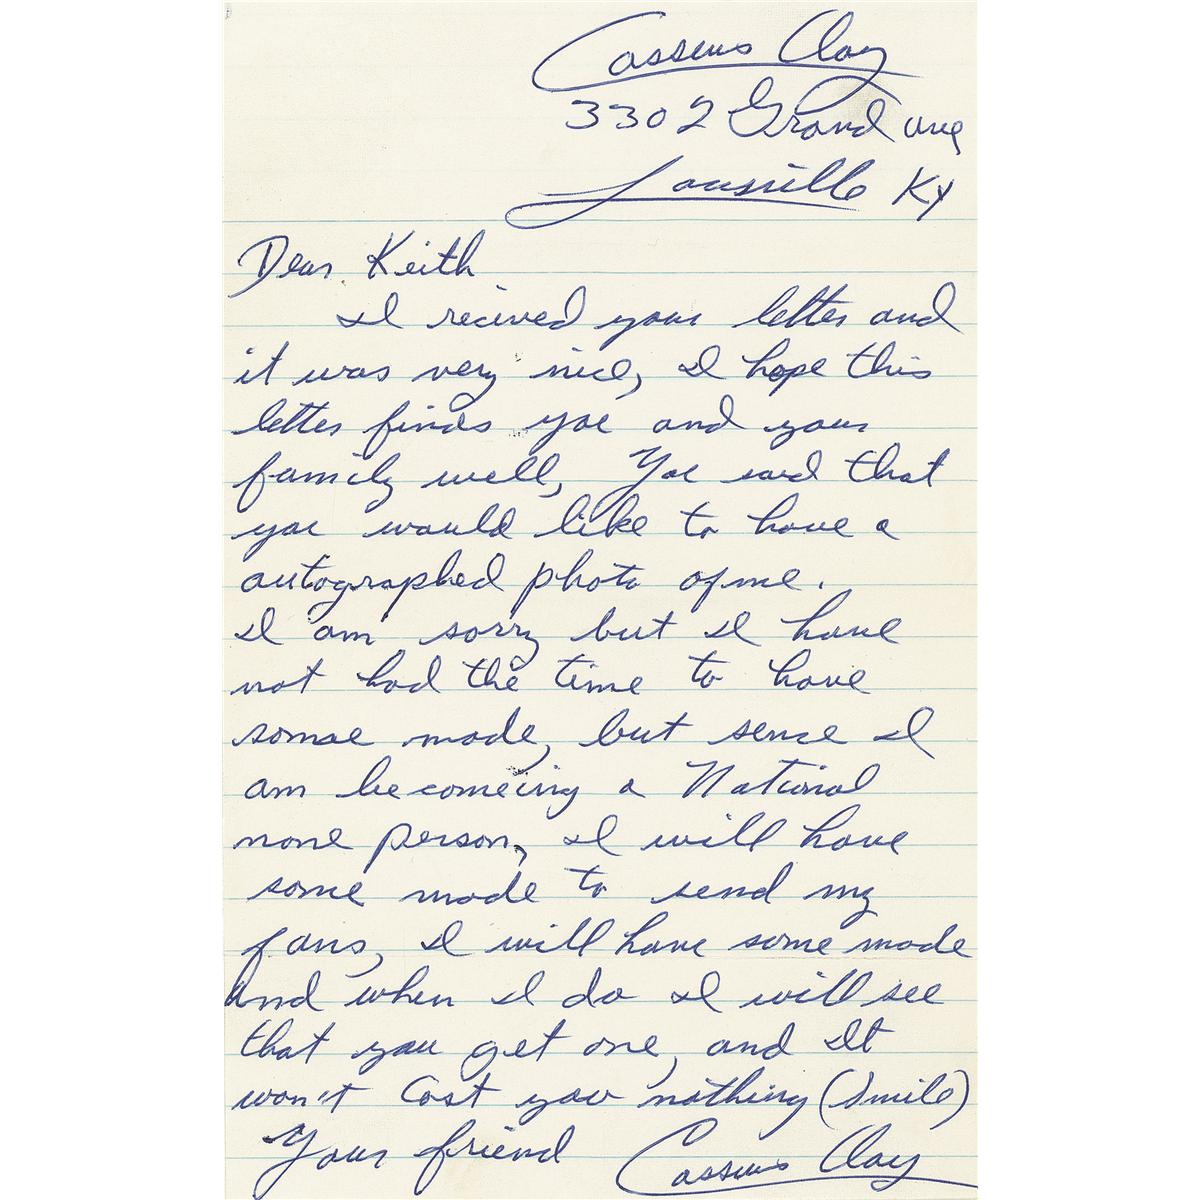 Cassius Clay
3302 Grand ave
Louisville Ky
Dear Keith
I recived your letter and
it was very nice, I hope this
letter finds you and your
family well, You said that
you would like to have a
autographed photo of me.
I am sorry but I have
not had the time to have
somae made, but sence I
am becomeing a National
none person, I will have
some made to send my
fans, I will have some made
And when I do I will see
that you get one, and It
won't Cost you nothing (Smile)
Your friend Cassius Clay